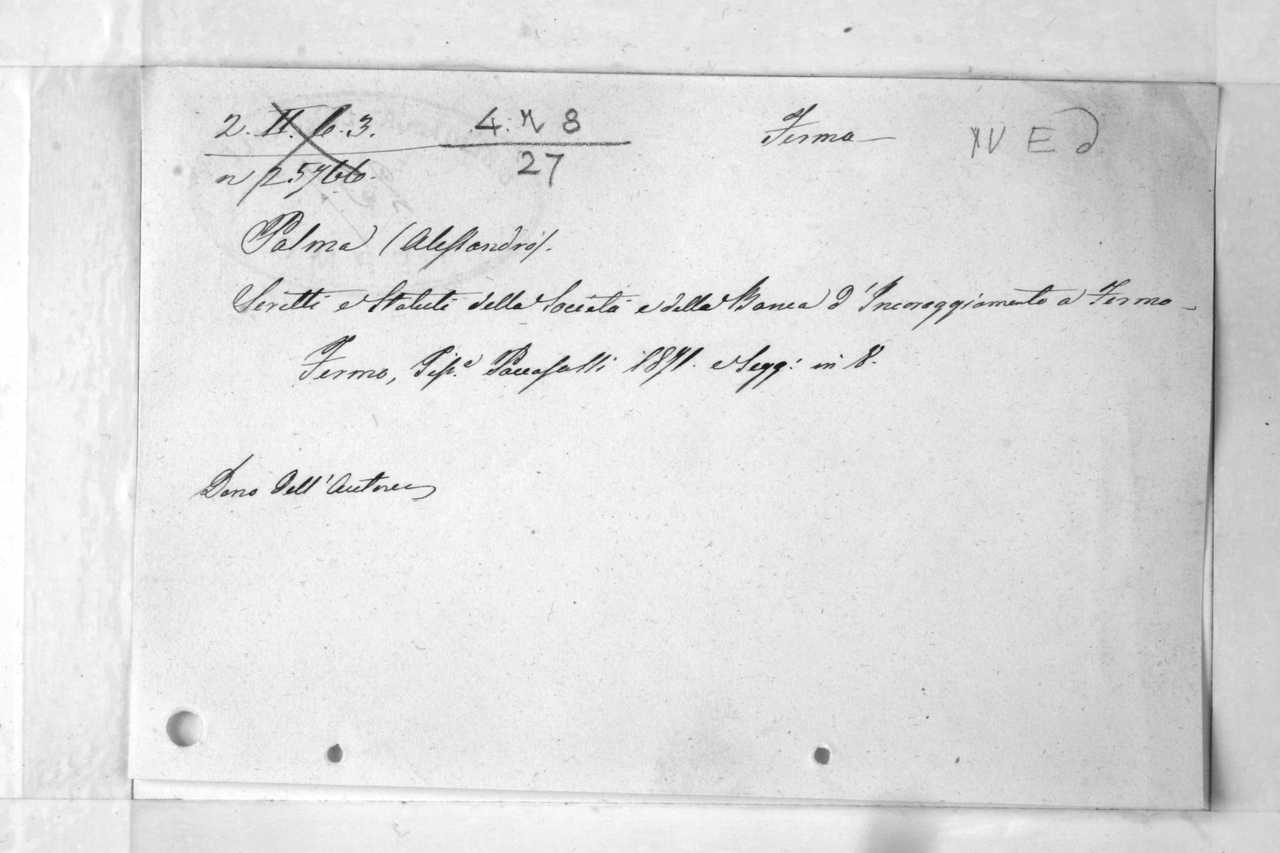 2. II. 6. 3. 4. N 8 Fermo XV E d
n 25766. 27
Palma (Alessandro).
Scritti e Statuti della Società e della Banca d'Incoraggiamento a Fermo
Fermo, Tip.ª Paccasassi 1871. e segg: in 8.
Dono dell'Autore